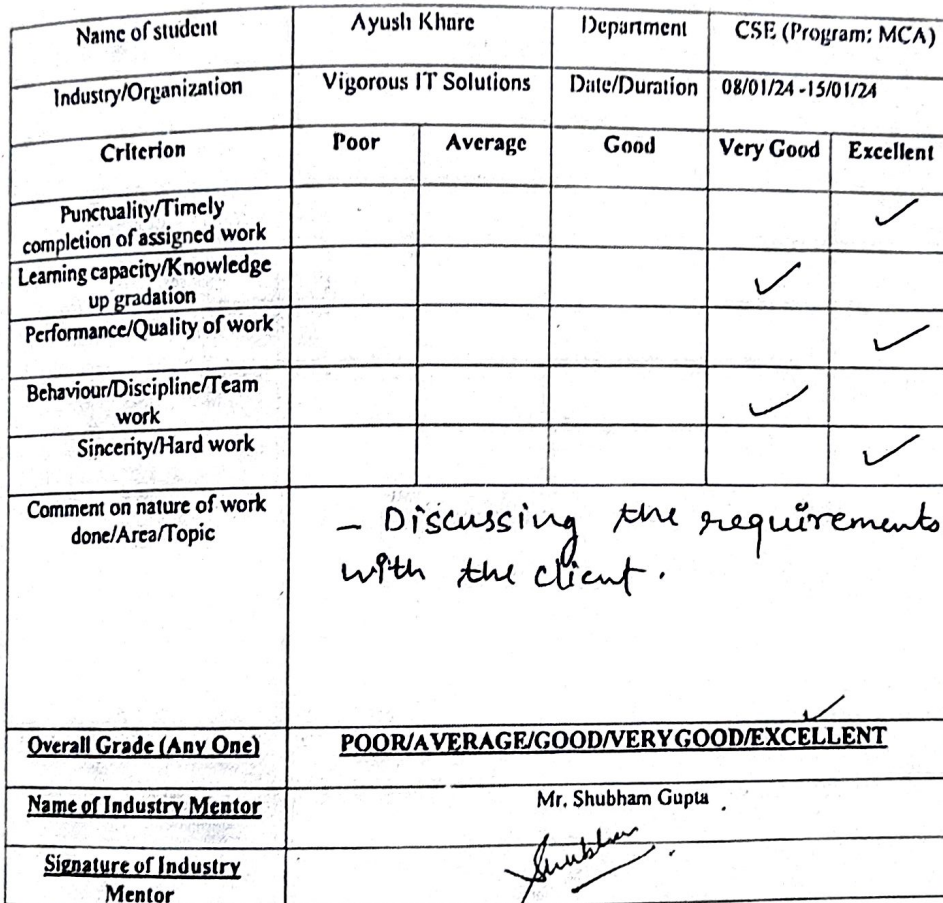 Name of student Ayush Khare Department CSE (Program: MCA)
Industry/Organization Vigorous IT Solutions Date/Duration 08/01/24 -15/01/24
Criterion Poor Average Good Very Good Excellent
Punctuality/Timely
completion of assigned work ✓
Learning capacity/Knowledge
up gradation ✓
Performance/Quality of work ✓
Behaviour/Discipline/Team
work ✓
Sincerity/Hard work ✓
Comment on nature of work
done/Area/Topic
– Discussing the requirements
with the client.
Overall Grade (Any One) POOR/AVERAGE/GOOD/VERY GOOD/EXCELLENT ✓
Name of Industry Mentor Mr. Shubham Gupta
Signature of Industry
Mentor Shubham